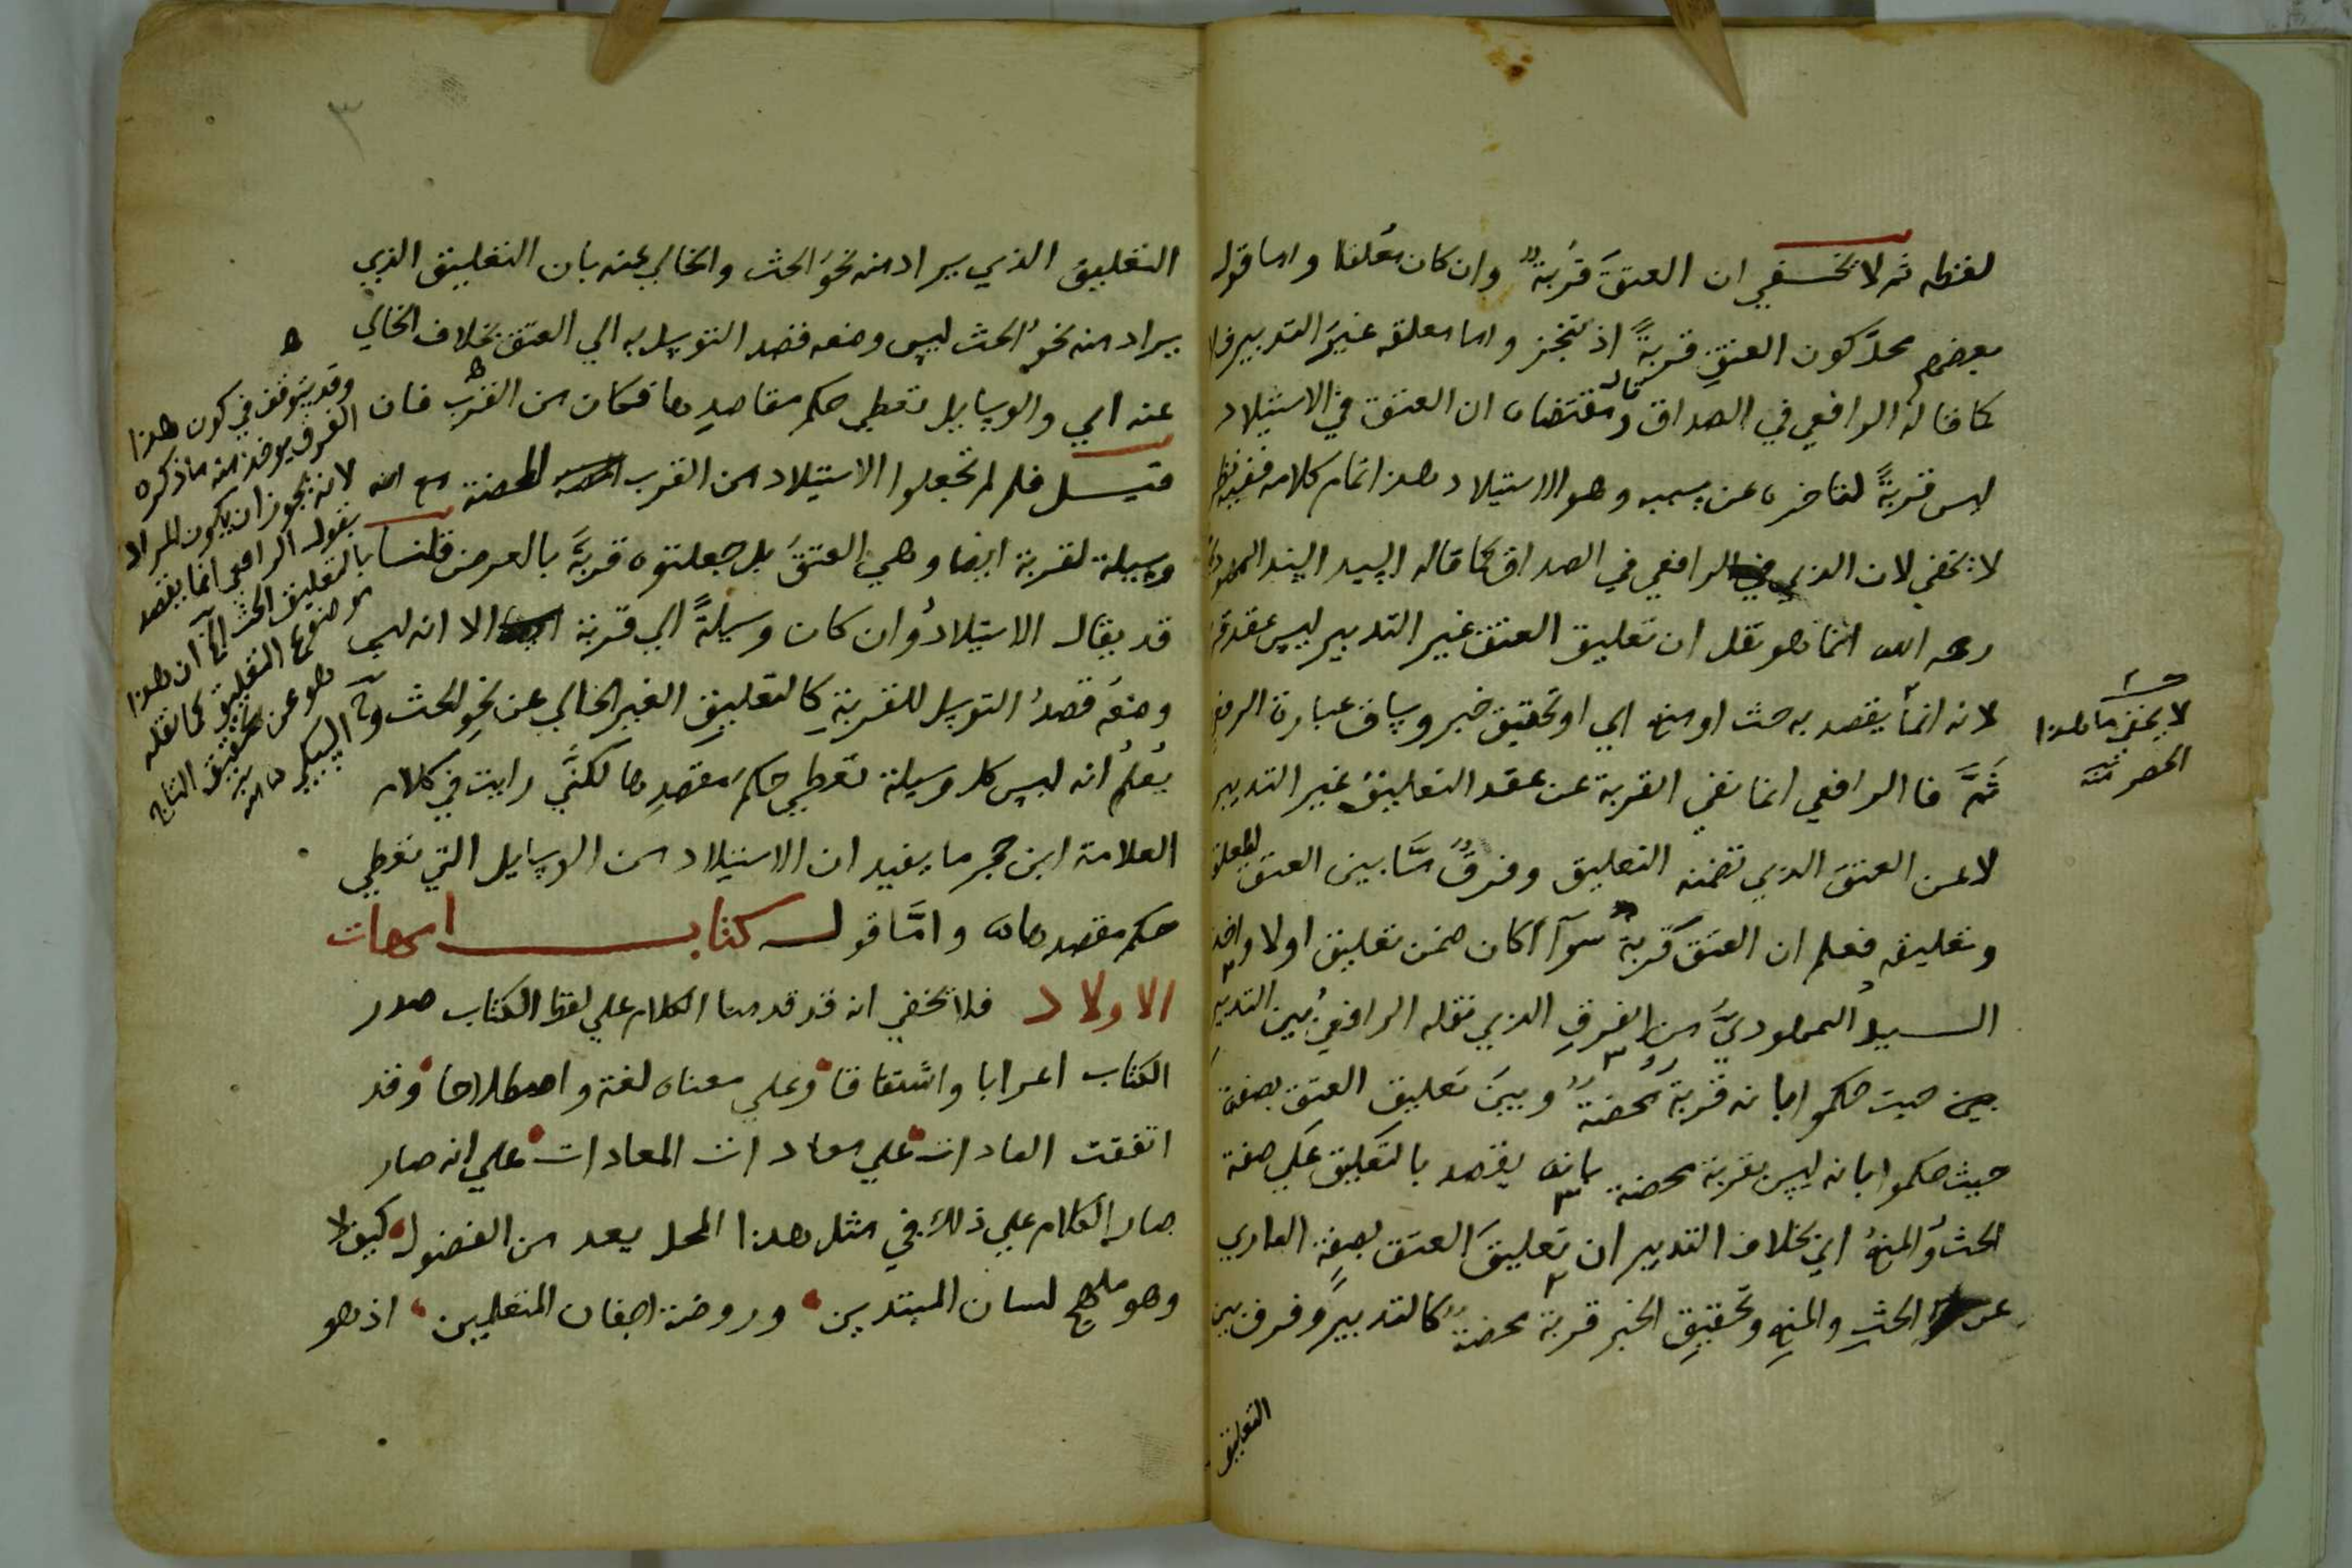 لفظه ثم لا تخفي ان العتق قربة وان كان معلقا واما قول
بعضهم محل كون العتق قربة اذ تنجز واما معلقه غير التدبير فلا
كما قاله الرافعي في الصداق قال ومقتضاه ان العتق في الاستيلاد
ليس قربة لتاخره عن سببه وهو الاستيلاد هذا تمام كلامه ففيه نظر
لا يخفي لان الذي في الرافعي في الصداق كما قاله السيد السند السمهودي
رحمه الله انما هو نقل ان تعليق العتق غير التدبير ليس عقد قربة
لانه انما يقصد به حث او منع اي او تحقيق خبر وساق عبارة الرافعي
ثم فا الرافعي انما نفي القربة عن عقد التعليق غير التدبير
لا عن العتق الذي تضمنه التعليق وفرق ما بين العتق المعلق
وتعليقه فعلم ان العتق قربة سوآ اكان ضمن تعليق اولا واخذ
السيد السمهودي من الفرق الذي نقله الرافعي بين التدبير
حيث حكموا بانه قربة محضة وبين تعليق العتق بصفة
حيث حكموا بانه ليس بقربة محضة بانه يقصد بالتعليق علي صفة
الحث والمنع اي بخلاف التدبير ان تعليق العتق بصفة العاري
عن الحث والمنع وتحقيق الخبر قربة محضة كالتدبير وفرق بين
التعليق
لا يخفي ما بهذا
الحصر منه
٣
التعليق الذي يراد منه نحو الحث والخالي عنه بان التعليق الذي
يراد منه نحو الحث ليس وضعه قصد التوسل به الي العتق بخلاف الخالي
عنه اي والوسايل تعطي حكم مقاصدها فكان من القرب فان
قيل فلم لم تجعلوا الاستيلاد من القرب المحضة مع انه
وسيلة لقربة ايضا وهي العتق بل جعلتوه قربة بالعرض قلنا
قد يقال الاستيلاد وان كان وسيلة الي قربة الا انه ليس
وضعه قصد التوسل للقربة كالتعليق الغير الخالي عن نحو الحث و
يعلم انه ليس كل وسيلة تعطي حكم مقصدها لكني رايت في كلام
العلامة ابن حجر ما يفيد ان الاستيلاد من الوسايل التي تعطي
حكم مقصدها واما قوله كتاب امهات
الاولاد فلا تخفي انه قد قدمنا الكلام علي لفظ الكتاب صدر
الكتاب اعرابا واشتقاقا وعلي معناه لغة واصطلاحا وقد
اتفقت العادات علي معادات المعادات علي انه صار
صار الكلام علي ذلك في مثل هذا المحل يعد من الفضول كيف لا
وهو ملهج لسان المبتدين وروضة اجفان المتعلمين اذ هو
وقد يتوقف في كون هذا
الفرق يوخذ منه ما ذكره
لانه يجوز ان يكون المراد
بقول الرافعي انما يقصد
بالتعليق الحث الخ ان هذا
موضوع التعليق كما نقله
هو عن تحقيق التاج
السبكي منه